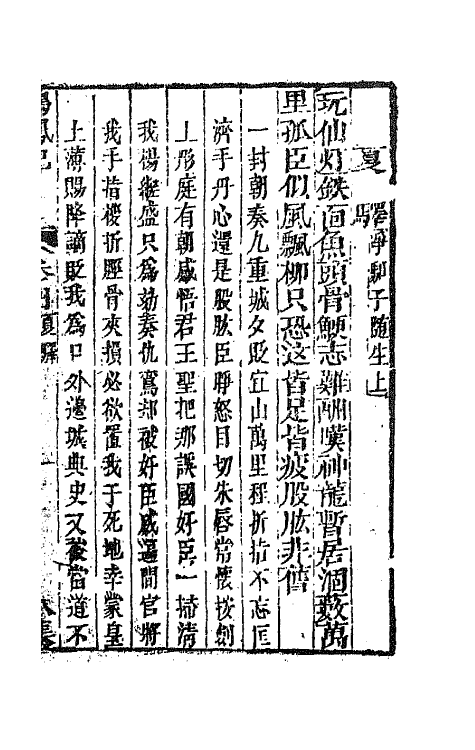 夏 驛 淨 子隨生上
玩仙灯鉄面魚頭骨鯁志難酬嘆神龍暫居涸藪萬
里孤臣們風飄柳只恐这皆足皆疲股肱非舊
一封朝奏九重城夕貶宜山萬里程折指不忘匡
濟手丹心還是股肱臣睜怒目切朱唇常懷拔劍
上彤庭有朝感悟君王聖把那誤國奸臣一掃清
我楊繼盛只為劾奏仇鸞却被奸臣威逼問官將
我手指桚折脛骨夾損必欲置我于死地幸蒙皇
上薄賜降謫貶我為口外邊城典史又蒙當道不
鳴鳳記 夏驛